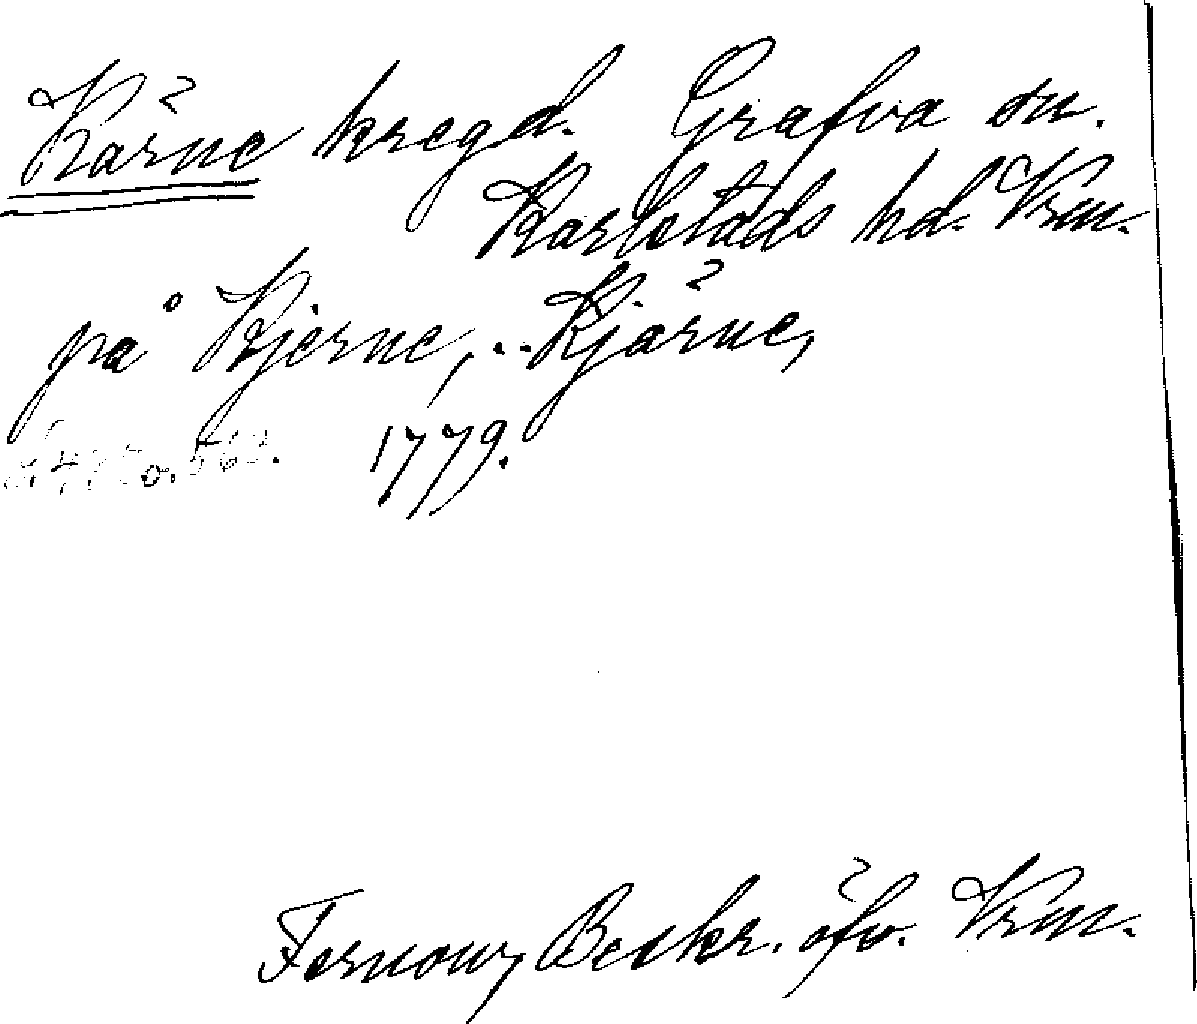 Kärne kregd. Grafva sn.
Karlstads hd. Vrm.
på Kjerne, .. Kjärne,
s. 435 o. 563. 1779.
Fernow, Beskr. öfv. Vrm.